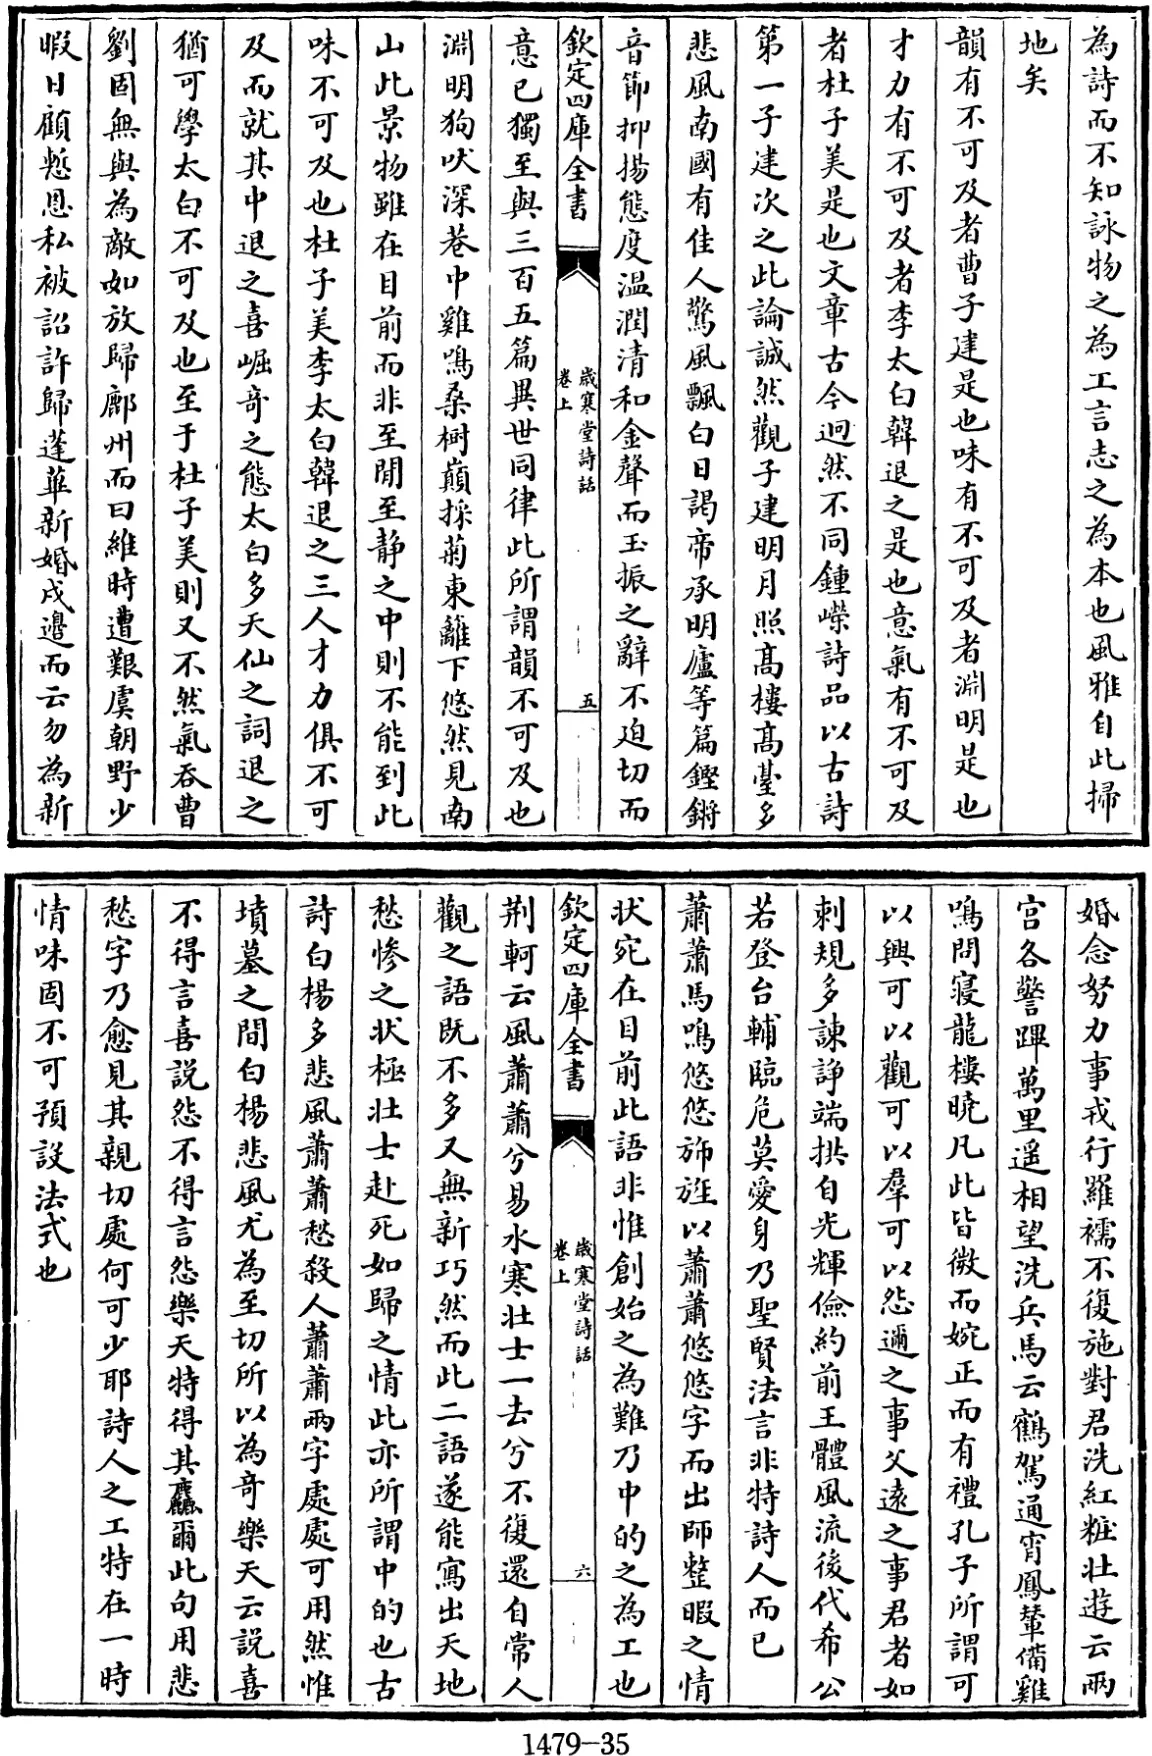 為詩而不知詠物之為工言志之為本也風雅自此掃
地矣
韻有不可及者曹子建是也味有不可及者淵明是也
才力有不可及者李太白韓退之是也意氣有不可及
者杜子美是也文章古今迥然不同鍾嶸詩品以古詩
第一子建次之此論誠然觀子建明月照髙樓髙臺多
悲風南國有佳人驚風飄白日謁帝承明廬等篇鏗鏘
音節抑揚態度温潤清和金聲而玉振之辭不迫切而
欽定四庫全書
歲寒堂詩話
卷上
五
意已獨至與三百五篇異世同律此所謂韻不可及也
淵明狗吠深巷中雞鳴桑樹巔採菊東籬下悠然見南
山此景物雖在目前而非至閒至静之中則不能到此
味不可及也杜子美李太白韓退之三人才力俱不可
及而就其中退之喜崛竒之態太白多天仙之詞退之
猶可學太白不可及也至于杜子美則又不然氣吞曹
劉固無與為敵如放歸鄜州而曰維時遭艱虞朝野少
暇日顧慙恩私被詔許歸蓬蓽新婚戍邊而云勿為新
婚念努力事戎行羅襦不復施對君洗紅粧壯遊云兩
宫各警蹕萬里遥相望洗兵馬云鶴駕通宵鳳輦備雞
鳴問寢龍樓曉凡此皆微而婉正而有禮孔子所謂可
以興可以觀可以羣可以怨邇之事父遠之事君者如
刺規多諫諍端拱自光輝儉約前王體風流後代希公
若登台輔臨危莫愛身乃聖賢法言非特詩人而已
蕭蕭馬鳴悠悠斾旌以蕭蕭悠悠字而出師整暇之情
状宛在目前此語非惟創始之為難乃中的之為工也
欽定四庫全書
歲寒堂詩話
卷上
六
荆軻云風蕭蕭兮易水寒壯士一去兮不復還自常人
觀之語既不多又無新巧然而此二語遂能寫出天地
愁慘之状極壯士赴死如歸之情此亦所謂中的也古
詩白楊多悲風蕭蕭愁殺人蕭蕭兩字處處可用然惟
墳墓之間白楊悲風尤為至切所以為竒樂天云説喜
不得言喜説怨不得言怨樂天特得其麤爾此句用悲
愁字乃愈見其親切處何可少耶詩人之工特在一時
情味固不可預設法式也
1479-35